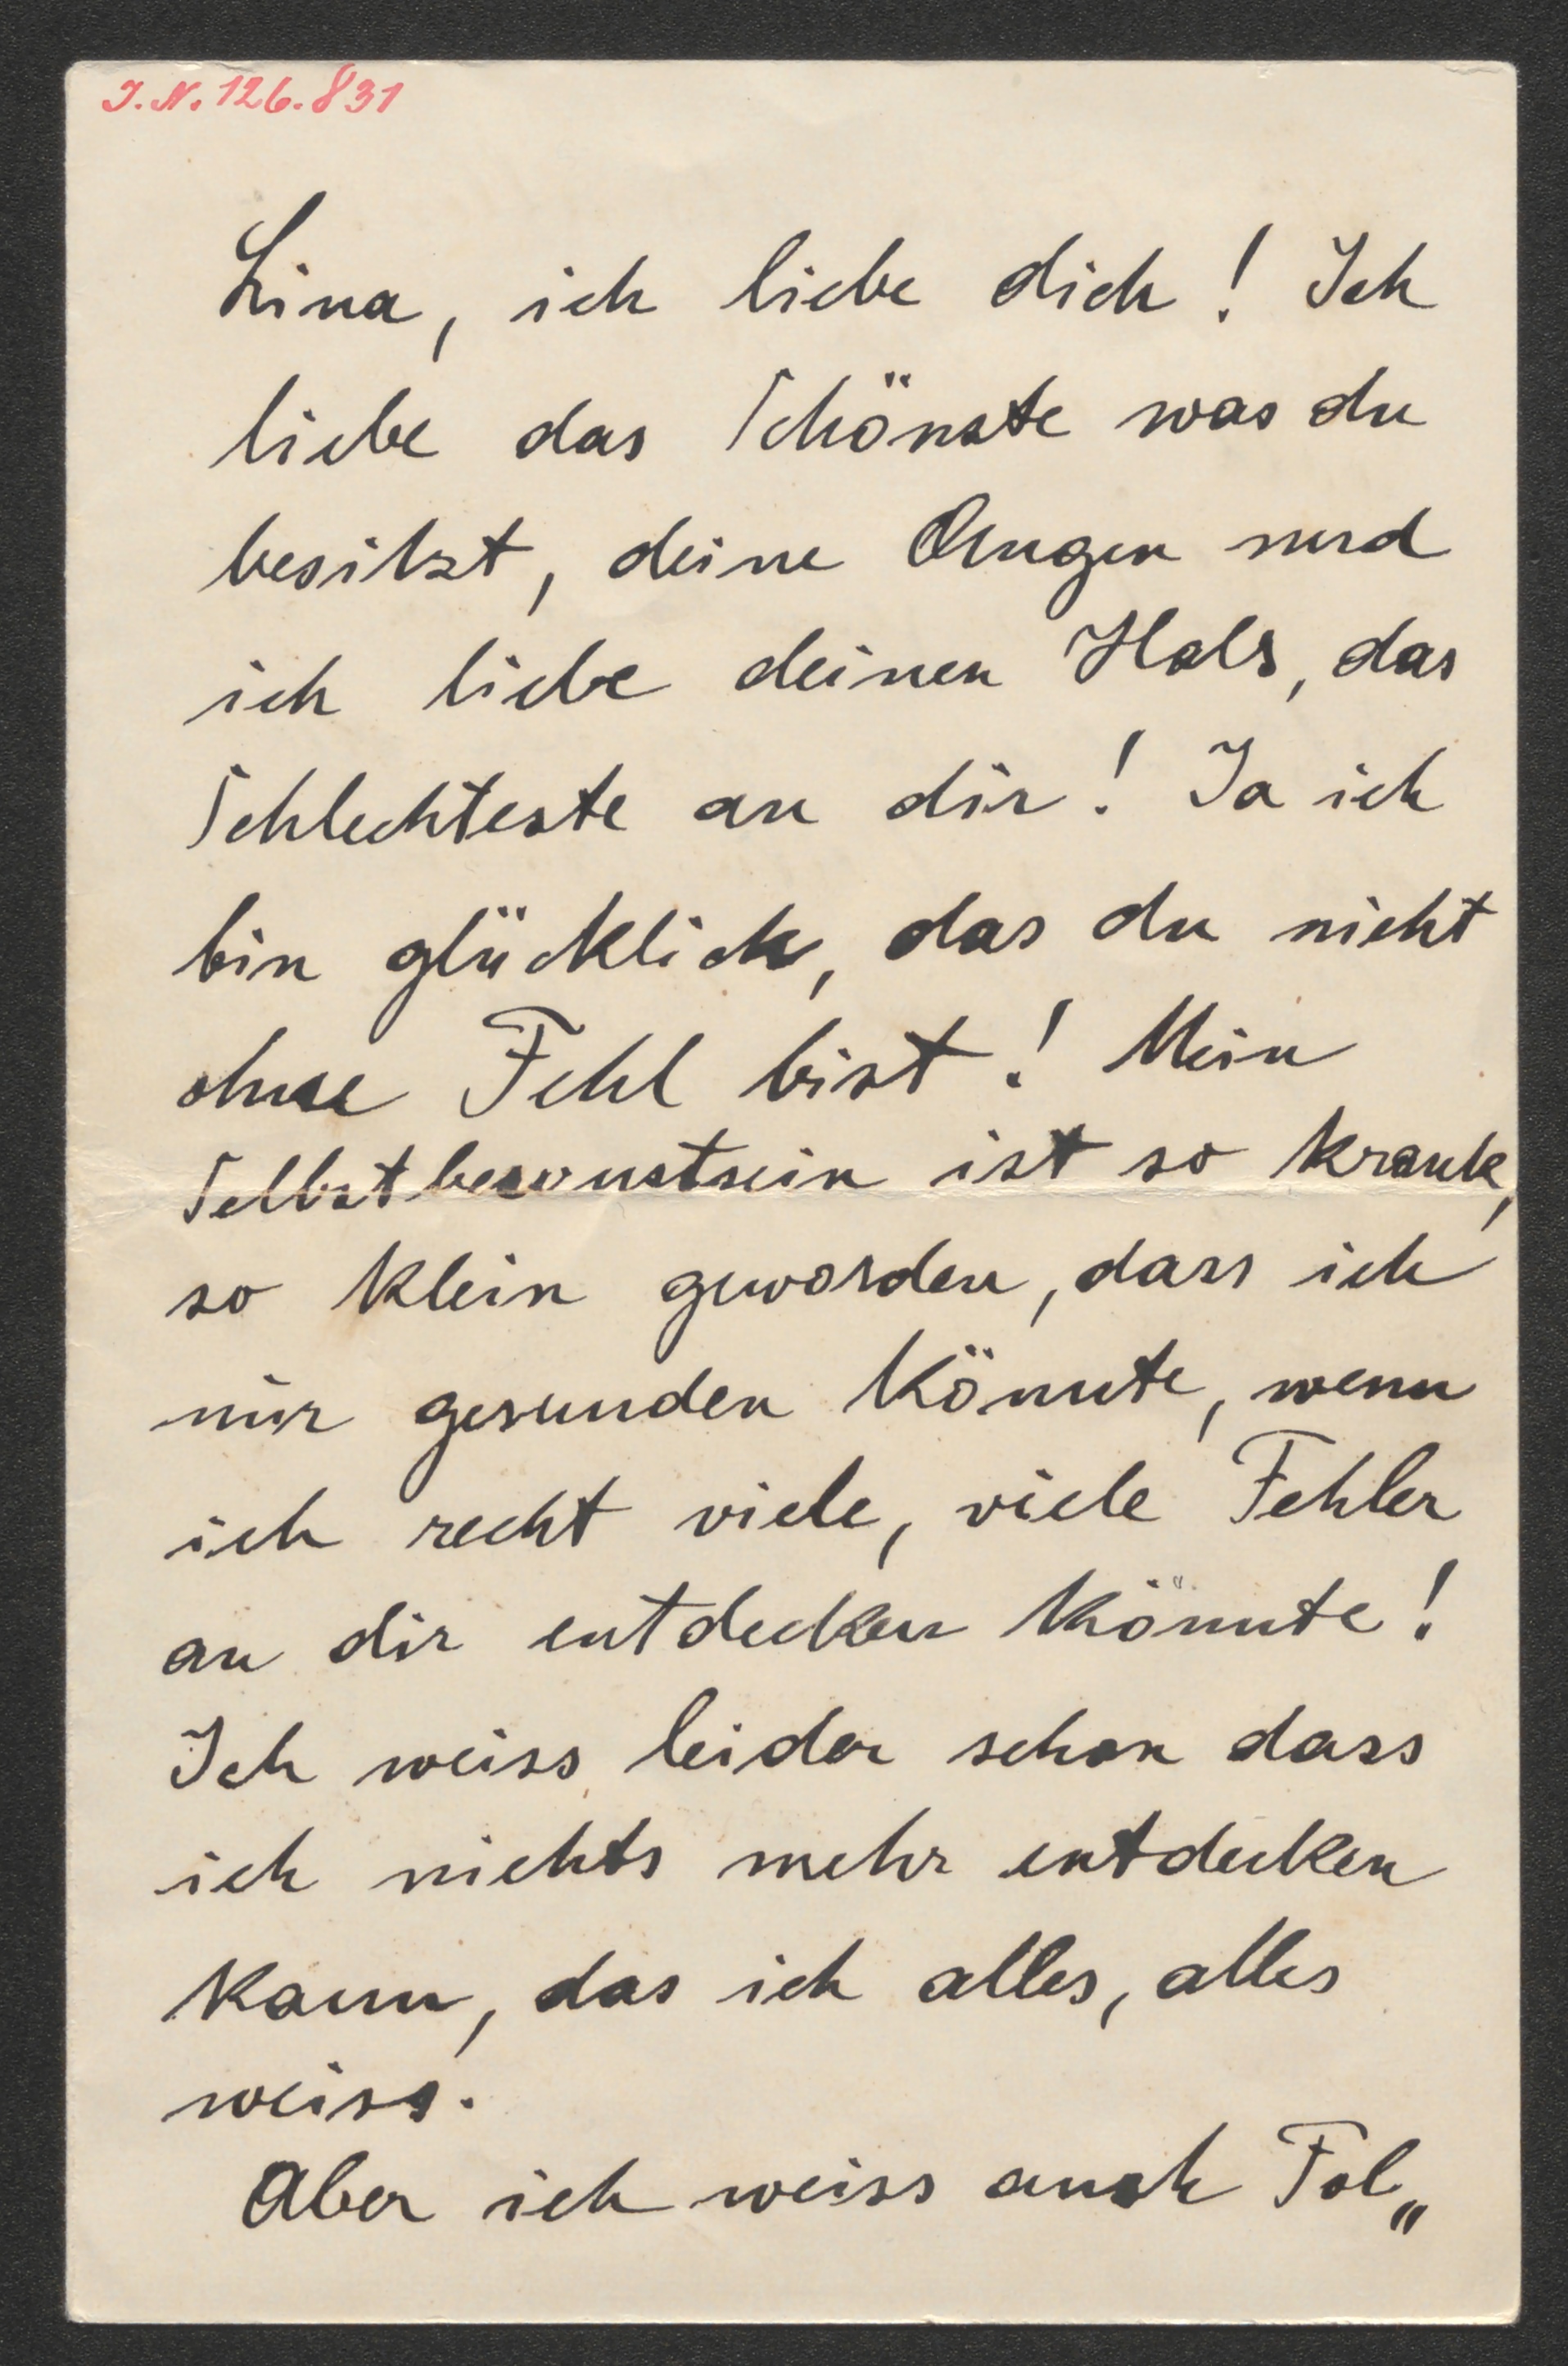 J.N. 126.831
Lina, ich liebe dich! Ich
liebe das Schönste was du
besitzt, deine Augen und
ich liebe deinen Hals, das
Schlechteste an dir! Ja ich
bin glücklich, das du nicht
ohne Fehl bist! Mein
Selbstbewustsein ist so krank,
so klein geworden, dass ich
nur gesunden könnte, wenn
ich recht viele, viele Fehler
an dir entdecken könnte!
Ich weiss leider schon dass
ich nichts mehr entdecken
kann, das ich alles, alles
weiss.
Aber ich weiss auch Fol„